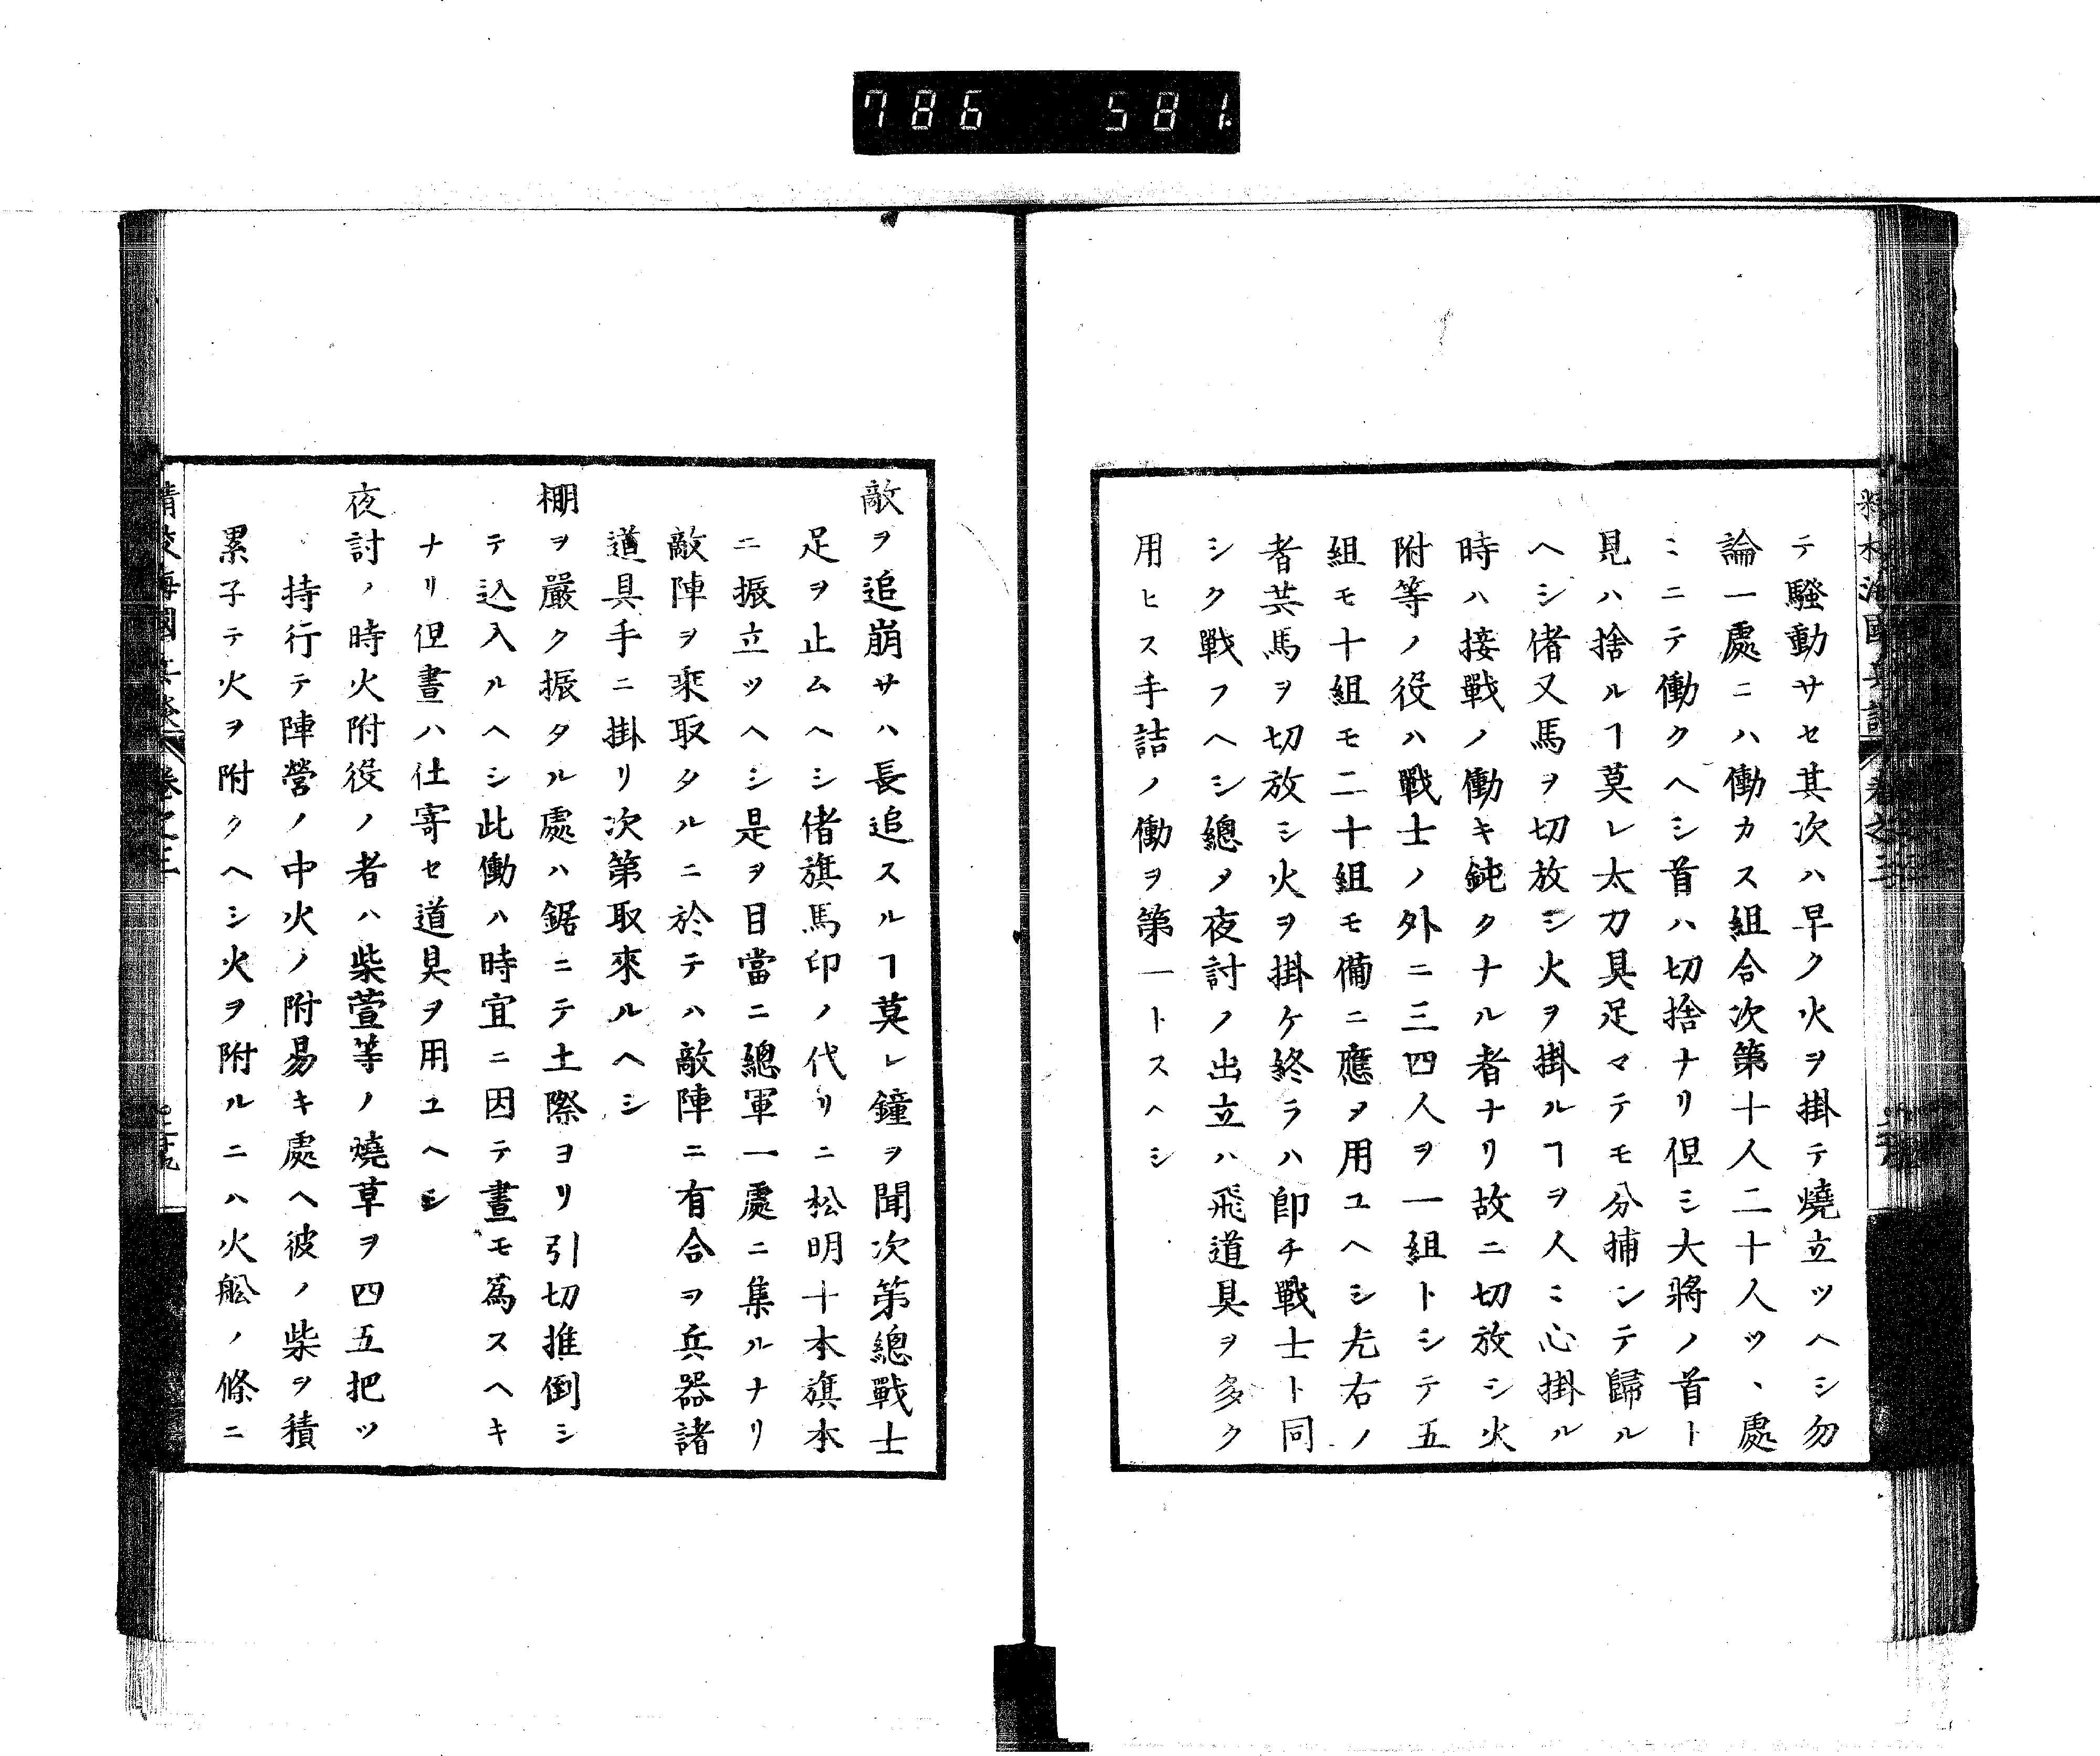 786 581
テ騷動サセ其次ハ早ク火ヲ掛テ燒立ツヘシ勿
論一處ニハ働カス組合次第十人二十人ツヽ處
ミニテ働クヘシ首ハ切捨ナリ但シ大將ノ首ト
見ハ捨ルヿ莫レ太刀具足マテモ分捕ンテ歸ル
ヘシ偖又馬ヲ切放シ火ヲ掛ルヿヲ人ミ心掛ル
時ハ接戰ノ働キ鈍クナル者ナリ故ニ切放シ火
附等ノ役ハ戰士ノ外ニ三四人ヲ一組トシテ五
組モ十組モ二十組モ備ニ應ヲ用ユヘシ左右ノ
者共馬ヲ切放シ火ヲ掛ケ終ラハ卽チ戰士ト同
シク戰フヘシ總メ夜討ノ出立ハ飛道具ヲ多ク
用ヒス手詰ノ働ヲ第一トスヘシ
敵ヲ追崩サハ長追スルヿ莫レ鐘ヲ聞次第總戰士
足ヲ止ムヘシ偖旗馬印ノ代リニ松明十本旗本
ニ振立ツヘシ是ヲ目當ニ總軍一處ニ集ルナリ
敵陣ヲ乘取タルニ於テハ敵陣ニ有合ヲ兵器諸
道具手ニ掛リ次第取來ルヘシ
棚ヲ嚴ク振タル處ハ鋸ニテ土際ヨリ引切推倒シ
テ込入ルヘシ此働ハ時宜ニ因テ晝モ爲スヘキ
ナリ但晝ハ仕寄セ道具ヲ用ユヘシ
夜討ノ時火附役ノ者ハ柴萱等ノ燒草ヲ四五把ツ
持行テ陣營ノ中火ノ附易キ處ヘ彼ノ柴ヲ積
累子テ火ヲ附クヘシ火ヲ附ルニハ火船ノ條ニ
海國兵談 卷之三